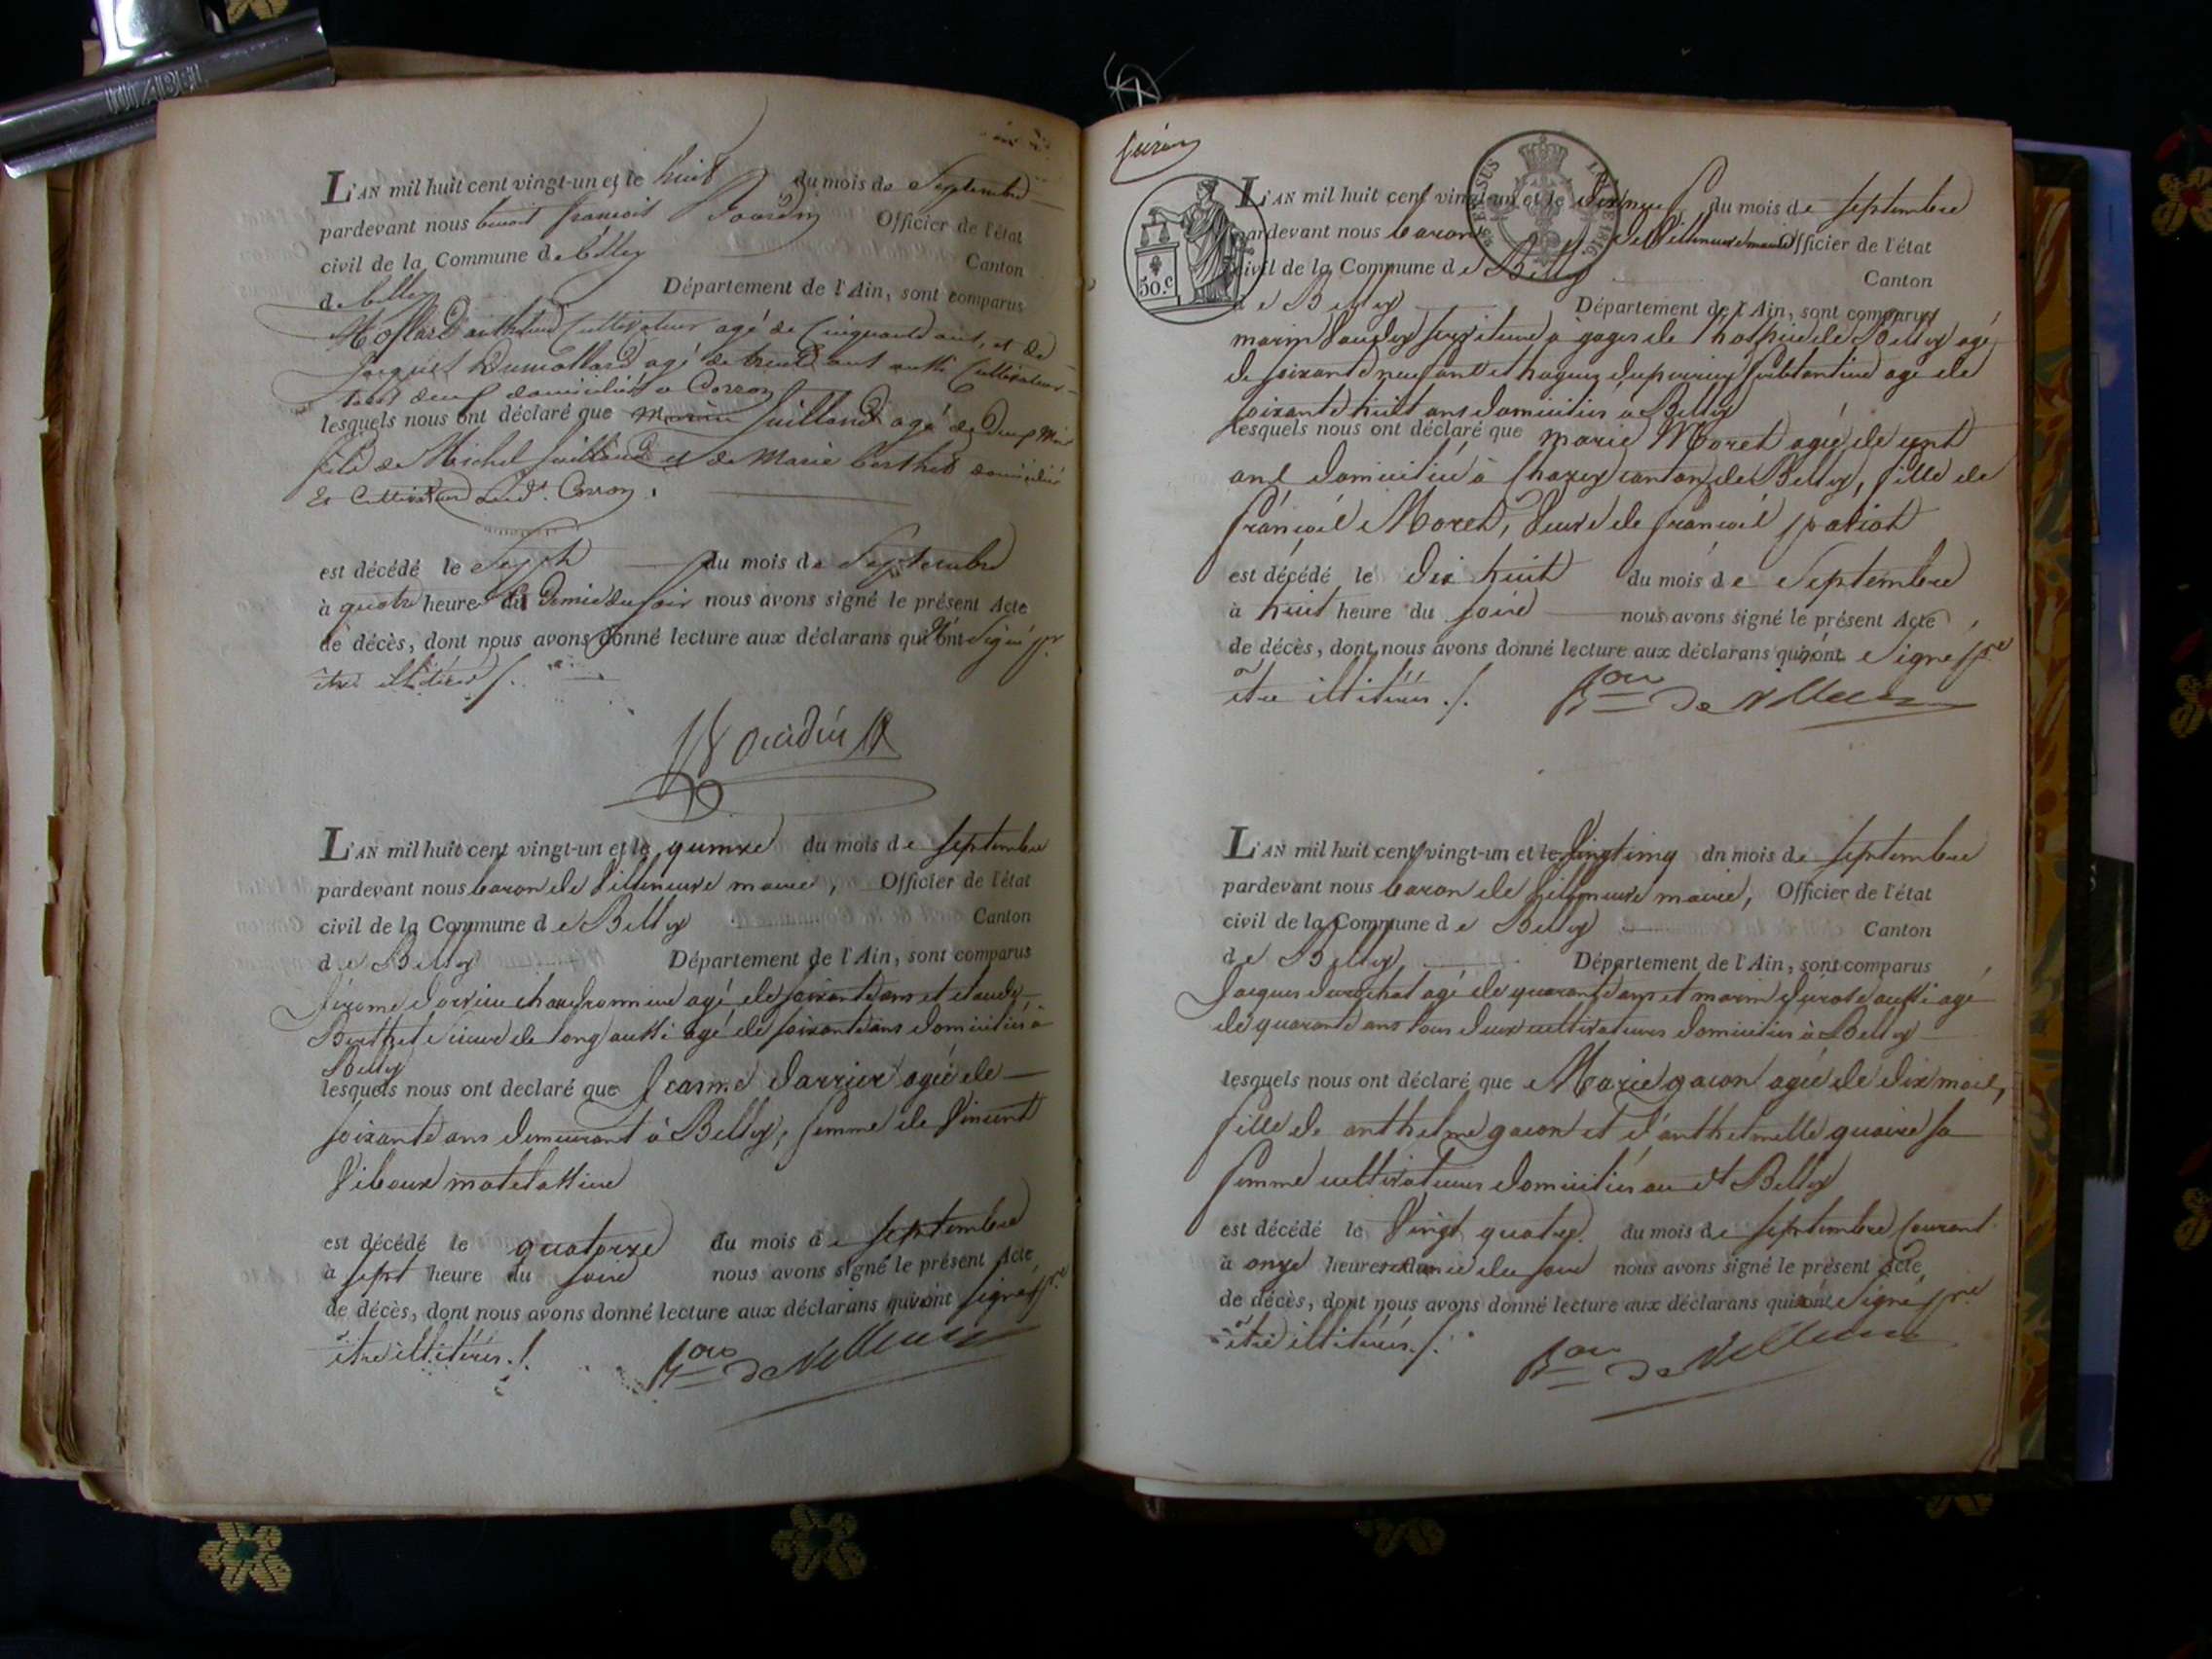 L'AN mil huit cent vingt-un et le huit du mois de Septembre
pardevant nous benoit françois Officier de l'état
civil de la Commune de belley Canton
de belley Département de l'Ain, sont comparus
Cultivateur agé de Cinquante ans, et de
Jacques Dumollard agé de trente ans aussi Cultivateur
tous deux domiciliés a Corron
lesquels nous ont déclaré que Juilland agé de Deux Mois
fils de Michel Juilland et de Marie berthet domicilié
Et Cultivateur aud.t Corron.
est décédé le Sept du mois de Septembre
à quatre heure du Demie du Soir nous avons signé le présent Acte
de décès, dont nous avons donné lecture aux déclarans qui n'ont Signé pr
être illiterés /.
L'AN mil huit cent vingt-un et le quinze du mois de septembre
pardevant nous baron de Villeneuve maire, Officier de l'état
civil de la Commune de Belley Canton
de Belley Département de l'Ain, sont comparus
Jérome Darrier chaudronnier agé de soixante ans et claude
Berthet aussi agé de soixante ans domiciliés à
Belley
lesquels nous ont declaré que Jeanne Darrier agée de
soixante ans demeurant à Belley, femme de Vincent
matelassier
est décédé le quatorze du mois de septembre
à sept heure du soir nous avons signé le présent Acte
de décès, dont nous avons donné lecture aux déclarans qui n'ont signé pr
être illitérés ./.
Bon de Villeneuve
50.c
L'AN mil huit cent vingt-un et le dixneuf du mois de septembre
pardevant nous baron de Villeneuve maire Officier de l'état
civil de la Commune de Belley Canton
de Belley Département de l'Ain, sont comparus
marin serviteur à gages de l'hospice de Belley agé
de soixante neuf ans et agé de
soixante huit ans domiciliés à Belley
lesquels nous ont déclaré que marie Moret agée de cent
ans domiciliée à Chazey canton de Belley, fille de
françois Moret, veuve de françois
est décédé le dix huit du mois de Septembre
à huit heure du soir nous avons signé le présent Acte
de décès, dont nous avons donné lecture aux déclarans qui n'ont Signé pr
être illitérés ./.
Bon de Villeneuve
L'AN mil huit cent vingt-un et le Vingt cinq dn mois de septembre
pardevant nous baron de Villeneuve maire, Officier de l'état
civil de la Commune de Belley Canton
de Belley Département de l'Ain, sont comparus
Jacques agé de quarante ans et marin aussi agé
de quarante ans tous deux cultivateurs domiciliés à Belley
lesquels nous ont déclaré que Marie gacon agée de dix mois,
fille de anthelme gacon et d'anthelmette sa
femme cultivateurs domiciliés au dt Belley
est décédé le Vingt quatre du mois de septembre courant
à onze heures du soir nous avons signé le présent Acte
de décès, dont nous avons donné lecture aux déclarans qui n'ont Signé pr
être illitérés ./.
Bon de Villeneuve